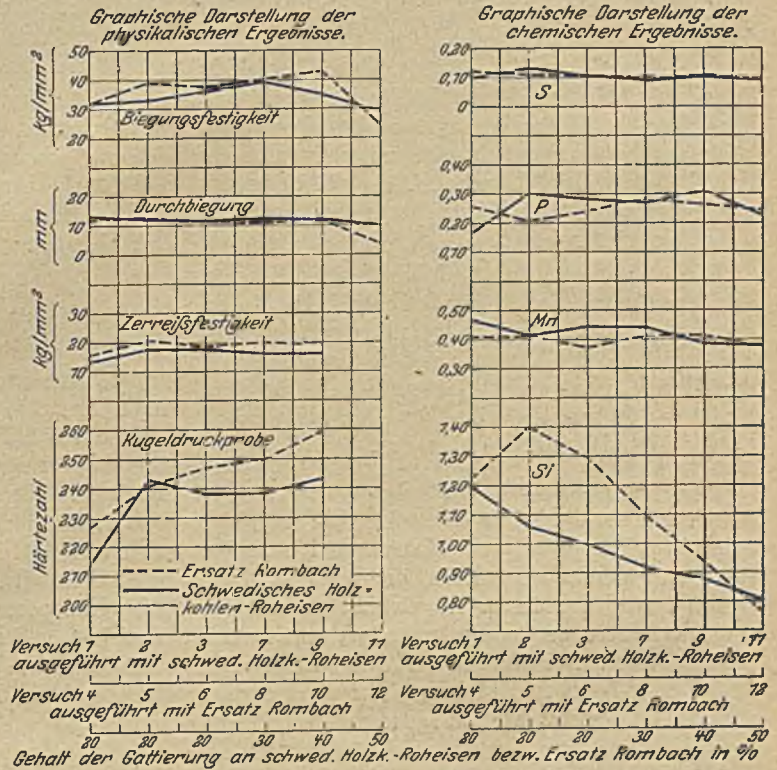 Graphische Darstellung der
physikalischen Ergebnisse.
50
40
30
20
kg/mm²
Biegungsfestigkeit
20
10
0
mm
Durchbiegung
30
20
10
kg/mm²
Zerreißfestigkeit
260
250
240
230
220
210
200
Härtezahl
Kugeldruckprobe
Ersatz Rombach
Schwedisches Holz-
kohlen-Roheisen
Versuch 1 2 3 7 9 11
ausgeführt mit schwed. Holzk.-Roheisen
Versuch 4 5 6 8 10 12
ausgeführt mit Ersatz Rombach
20 20 20 30 40 50
Graphische Darstellung der
chemischen Ergebnisse.
0,20
0,10
0
S
0,40
0,30
0,20
0,10
P
0,50
0,40
0,30
Mn
1,40
1,30
1,20
1,10
1,00
0,90
0,80
Si
Versuch 1 2 3 7 9 11
ausgeführt mit schwed. Holzk.-Roheisen
Versuch 4 5 6 8 10 12
ausgeführt mit Ersatz Rombach
20 20 20 30 40 50
Gehalt der Gattierung an schwed. Holzk.-Roheisen bezw. Ersatz Rombach in %